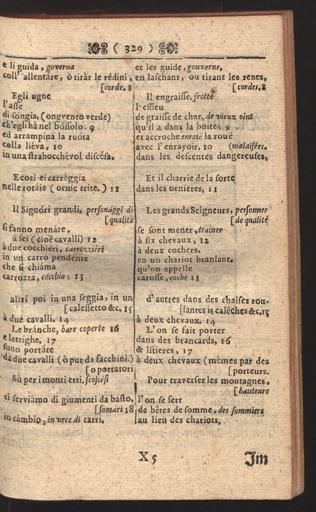 ( 329 )
e li guida, governa
coll' allentare, ò tirar le rédini,
[corde, 8
Egli ugne
l'asse
di songia, (ongvento verde)
ch'egli hà nel bóssolo: 9
ed arrampina la ruota
colla liéva, 10
in una strabocchévol discésa.
E cosi é carréggia
nelle rotáje (orme trite.) 11
Il Signóri grandi, personággi di
[qualità
si fanno menare,
à sei (cioè cavalli) 12
à due cocchiéri, carrozziéri
in un carro pendente
che si chiáma
carrozza, cócchio; 13
altri poi in una seggia, in un
[calessetto &c. 15
à due cavalli. 14
Le brànche, bare coperte 16
e lettrighe, 17
sono portáte
dà due cavalli (ò pur da facchini.)
[o portatori
Sù per i monti erti, scoscési
ci serviámo di giumenti da basto,
[somári 18
in cámbio, in vece di carri.
et les guide, gouverne,
en laschant, ou tirant les renes,
[cordes, 8
Il engraisse, frotte
l'essieu
de graisse de char, de vieux oint
qu'il a dans la boite; 9
et accroche enraïe la roué
avec l'enrayoir, 10 (malaisées.
dans les descentes dangereuses,
Et il charrie de la sorte
dans les ornieres, 11
Les grands Seigneurs, personnes
[de qualité
se sont mener, trainer
à six chevaux, 12
à deux cochers,
en un chariot branlant,
qu'on appelle
carosse, coche 13
d'autres dans des chaises rou-
[lantes is calèches &c, 15
à deux chevaux. 14
L'on se fait porter
dans des brancards, 16
& litieres, 17
à deux chevaux (mêmes par des
[porteurs.
Pour traverser les montagnes,
[hauteurs
l'on se sert
de bêtes de somme, des sommiers
au lieu des chariots,
X 5
Im